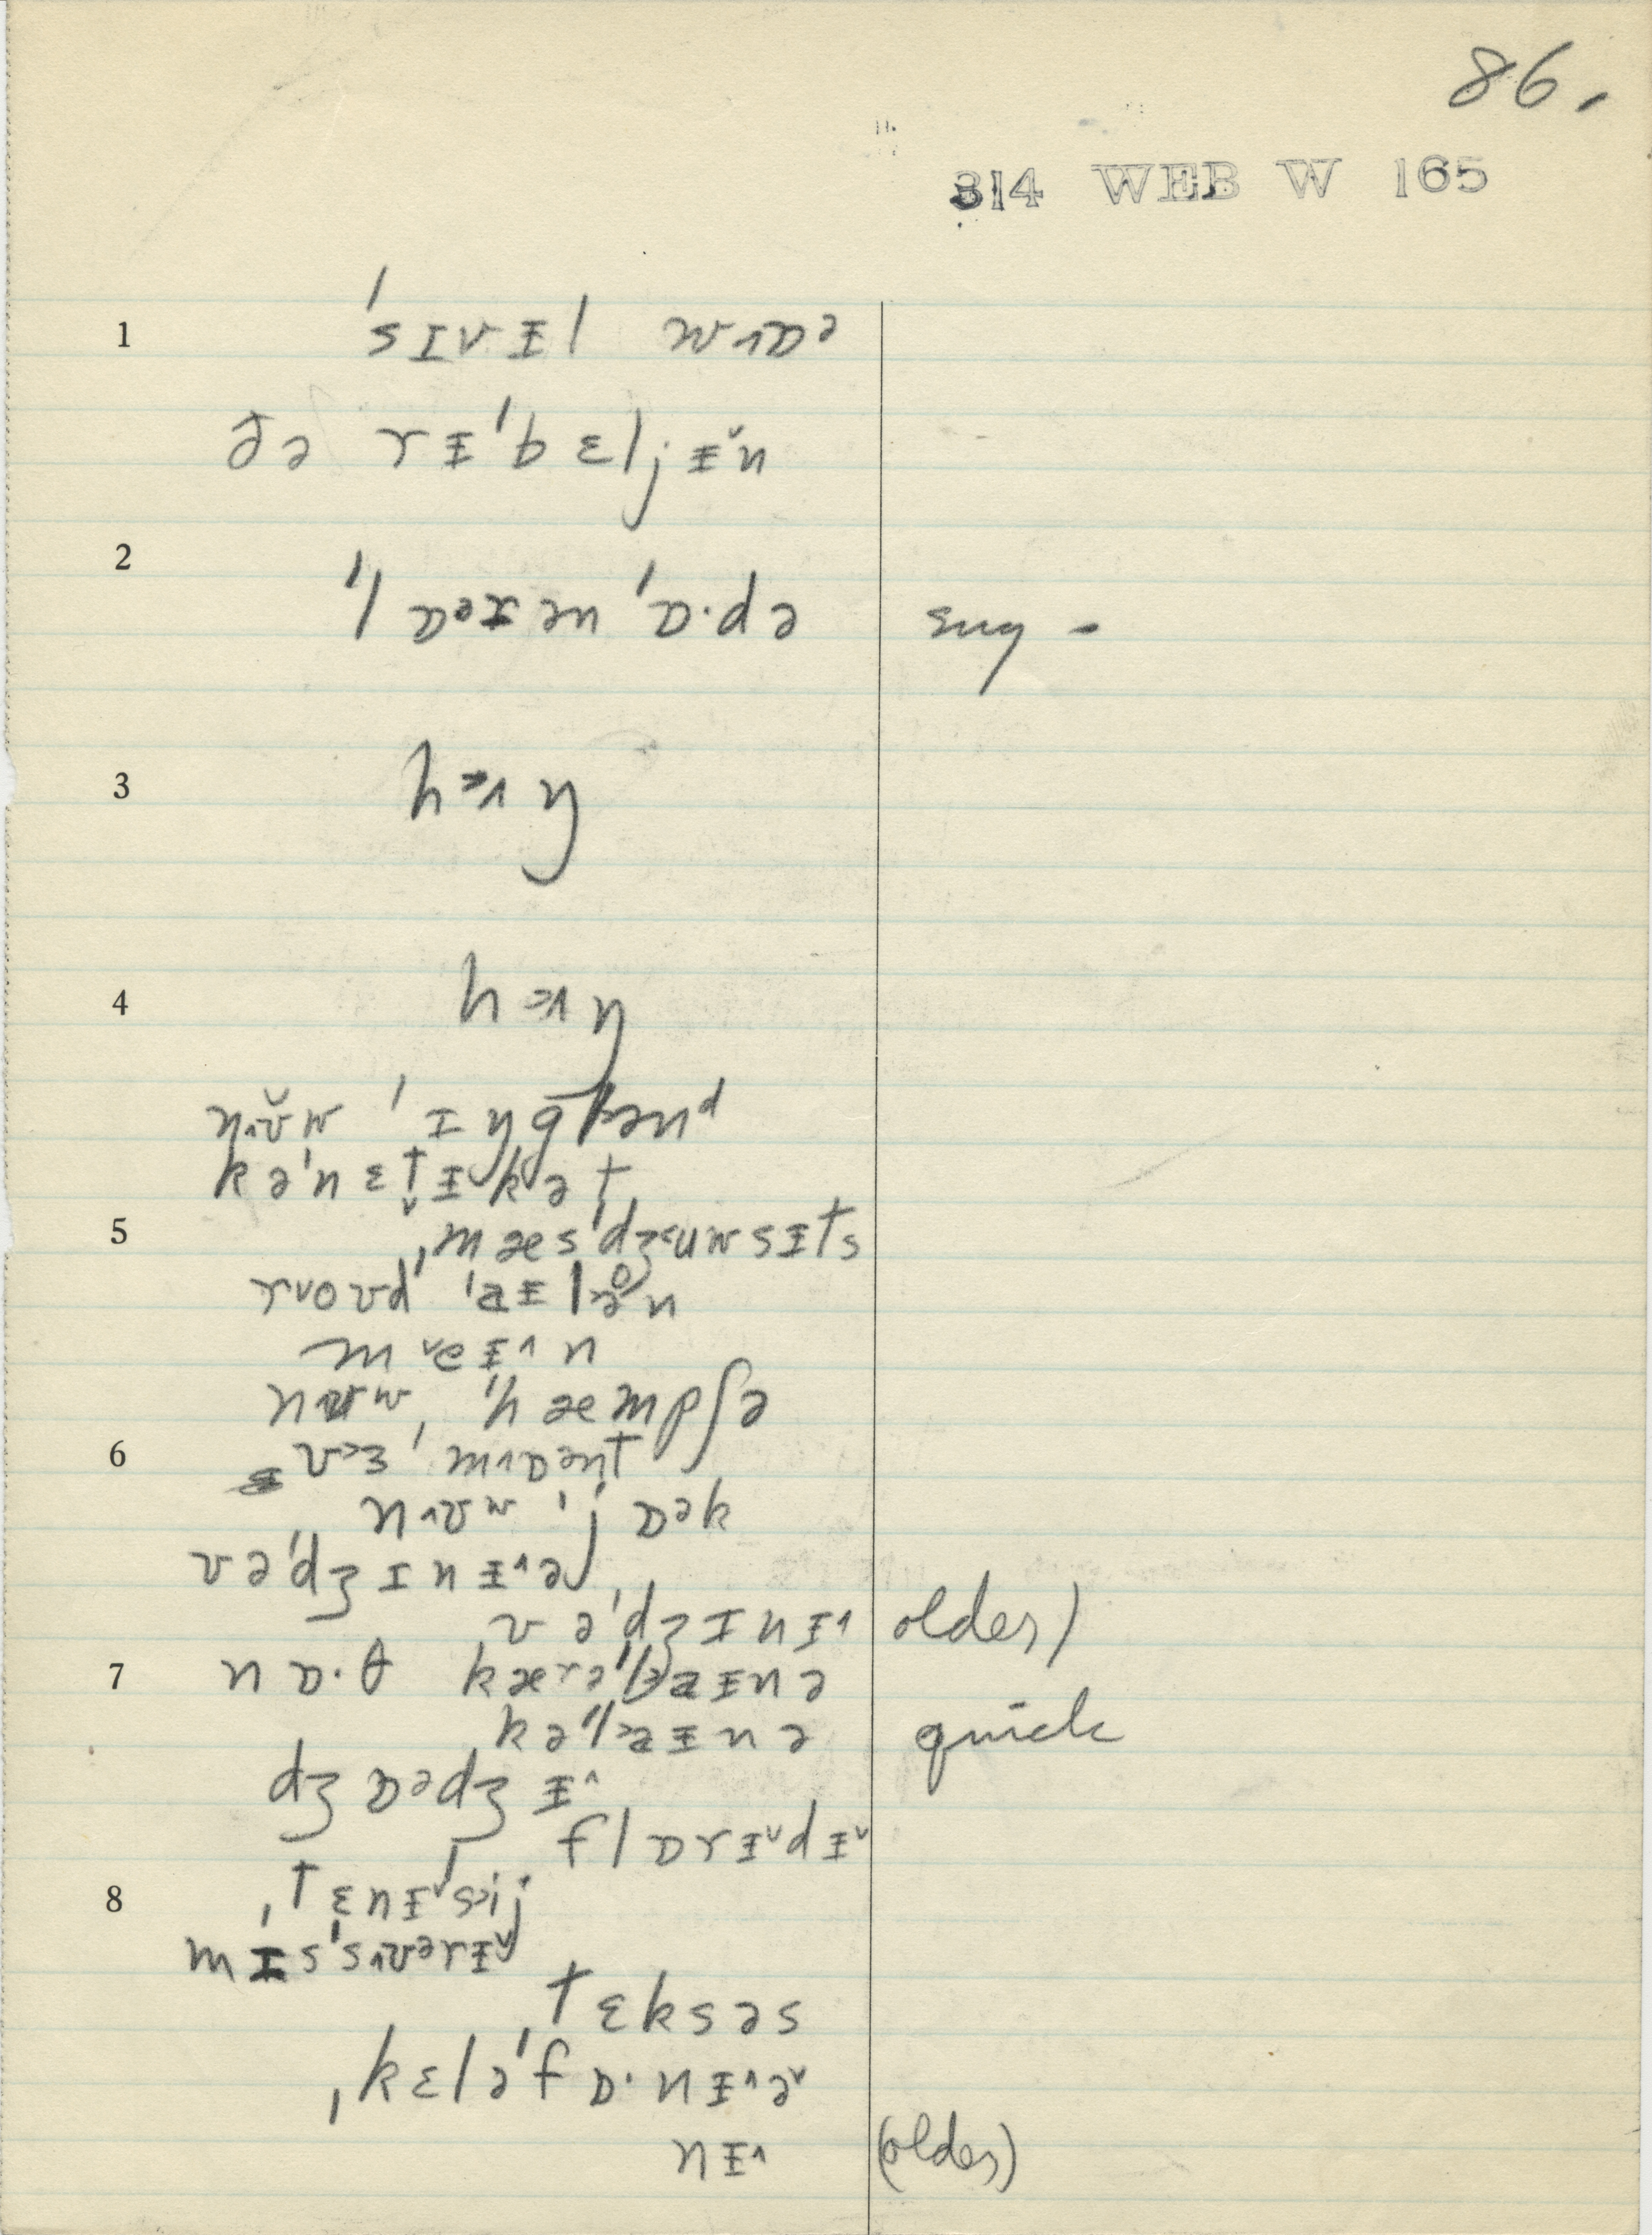 86.
314 WEB W 165
1 ˈsɪvɪ̵l wɒ˄ᵊ
ðə rɪ̵ˈbɛljɪ̵˅n
2 ˈlɒᵊɪ̵ənˈɒ·də sug -
3 hɔ˄ŋ
4 hɔ˄ŋ
nʊ˄̆w ˈɪŋglənᵈ
kəˈnɛt̬ɪ̵kət
5 ˌmæsˈdʒuwsɪ̵ts
ro˅ʊd ˈaɪ̵lən
me˅ɪ̵˄n
nʊw ˈhæmpʃə
6 vɜᵊˈmɒ˄ənt
nʊ˄ʷ ˈjɒᵊk
vəˈdʒɪnɪ̵˄ə
vəˈdʒɪnɪ̵˄ older)
7 nɒ·θ kærəˈlaɪ̵nə
kəˈlaɪ̵nə quick
dʒɒᵊdʒɪ̵˄
flɒrɪ̵˅dɪ̵˅
8 ˌtɛnɪ̵ˈsij
mɪsˈsʊ˄ərɪ̵˅
ˈtɛksəs
ˌkɛləˈfɒ·nɪ̵˄ə˅
nɪ̵˄ (older)